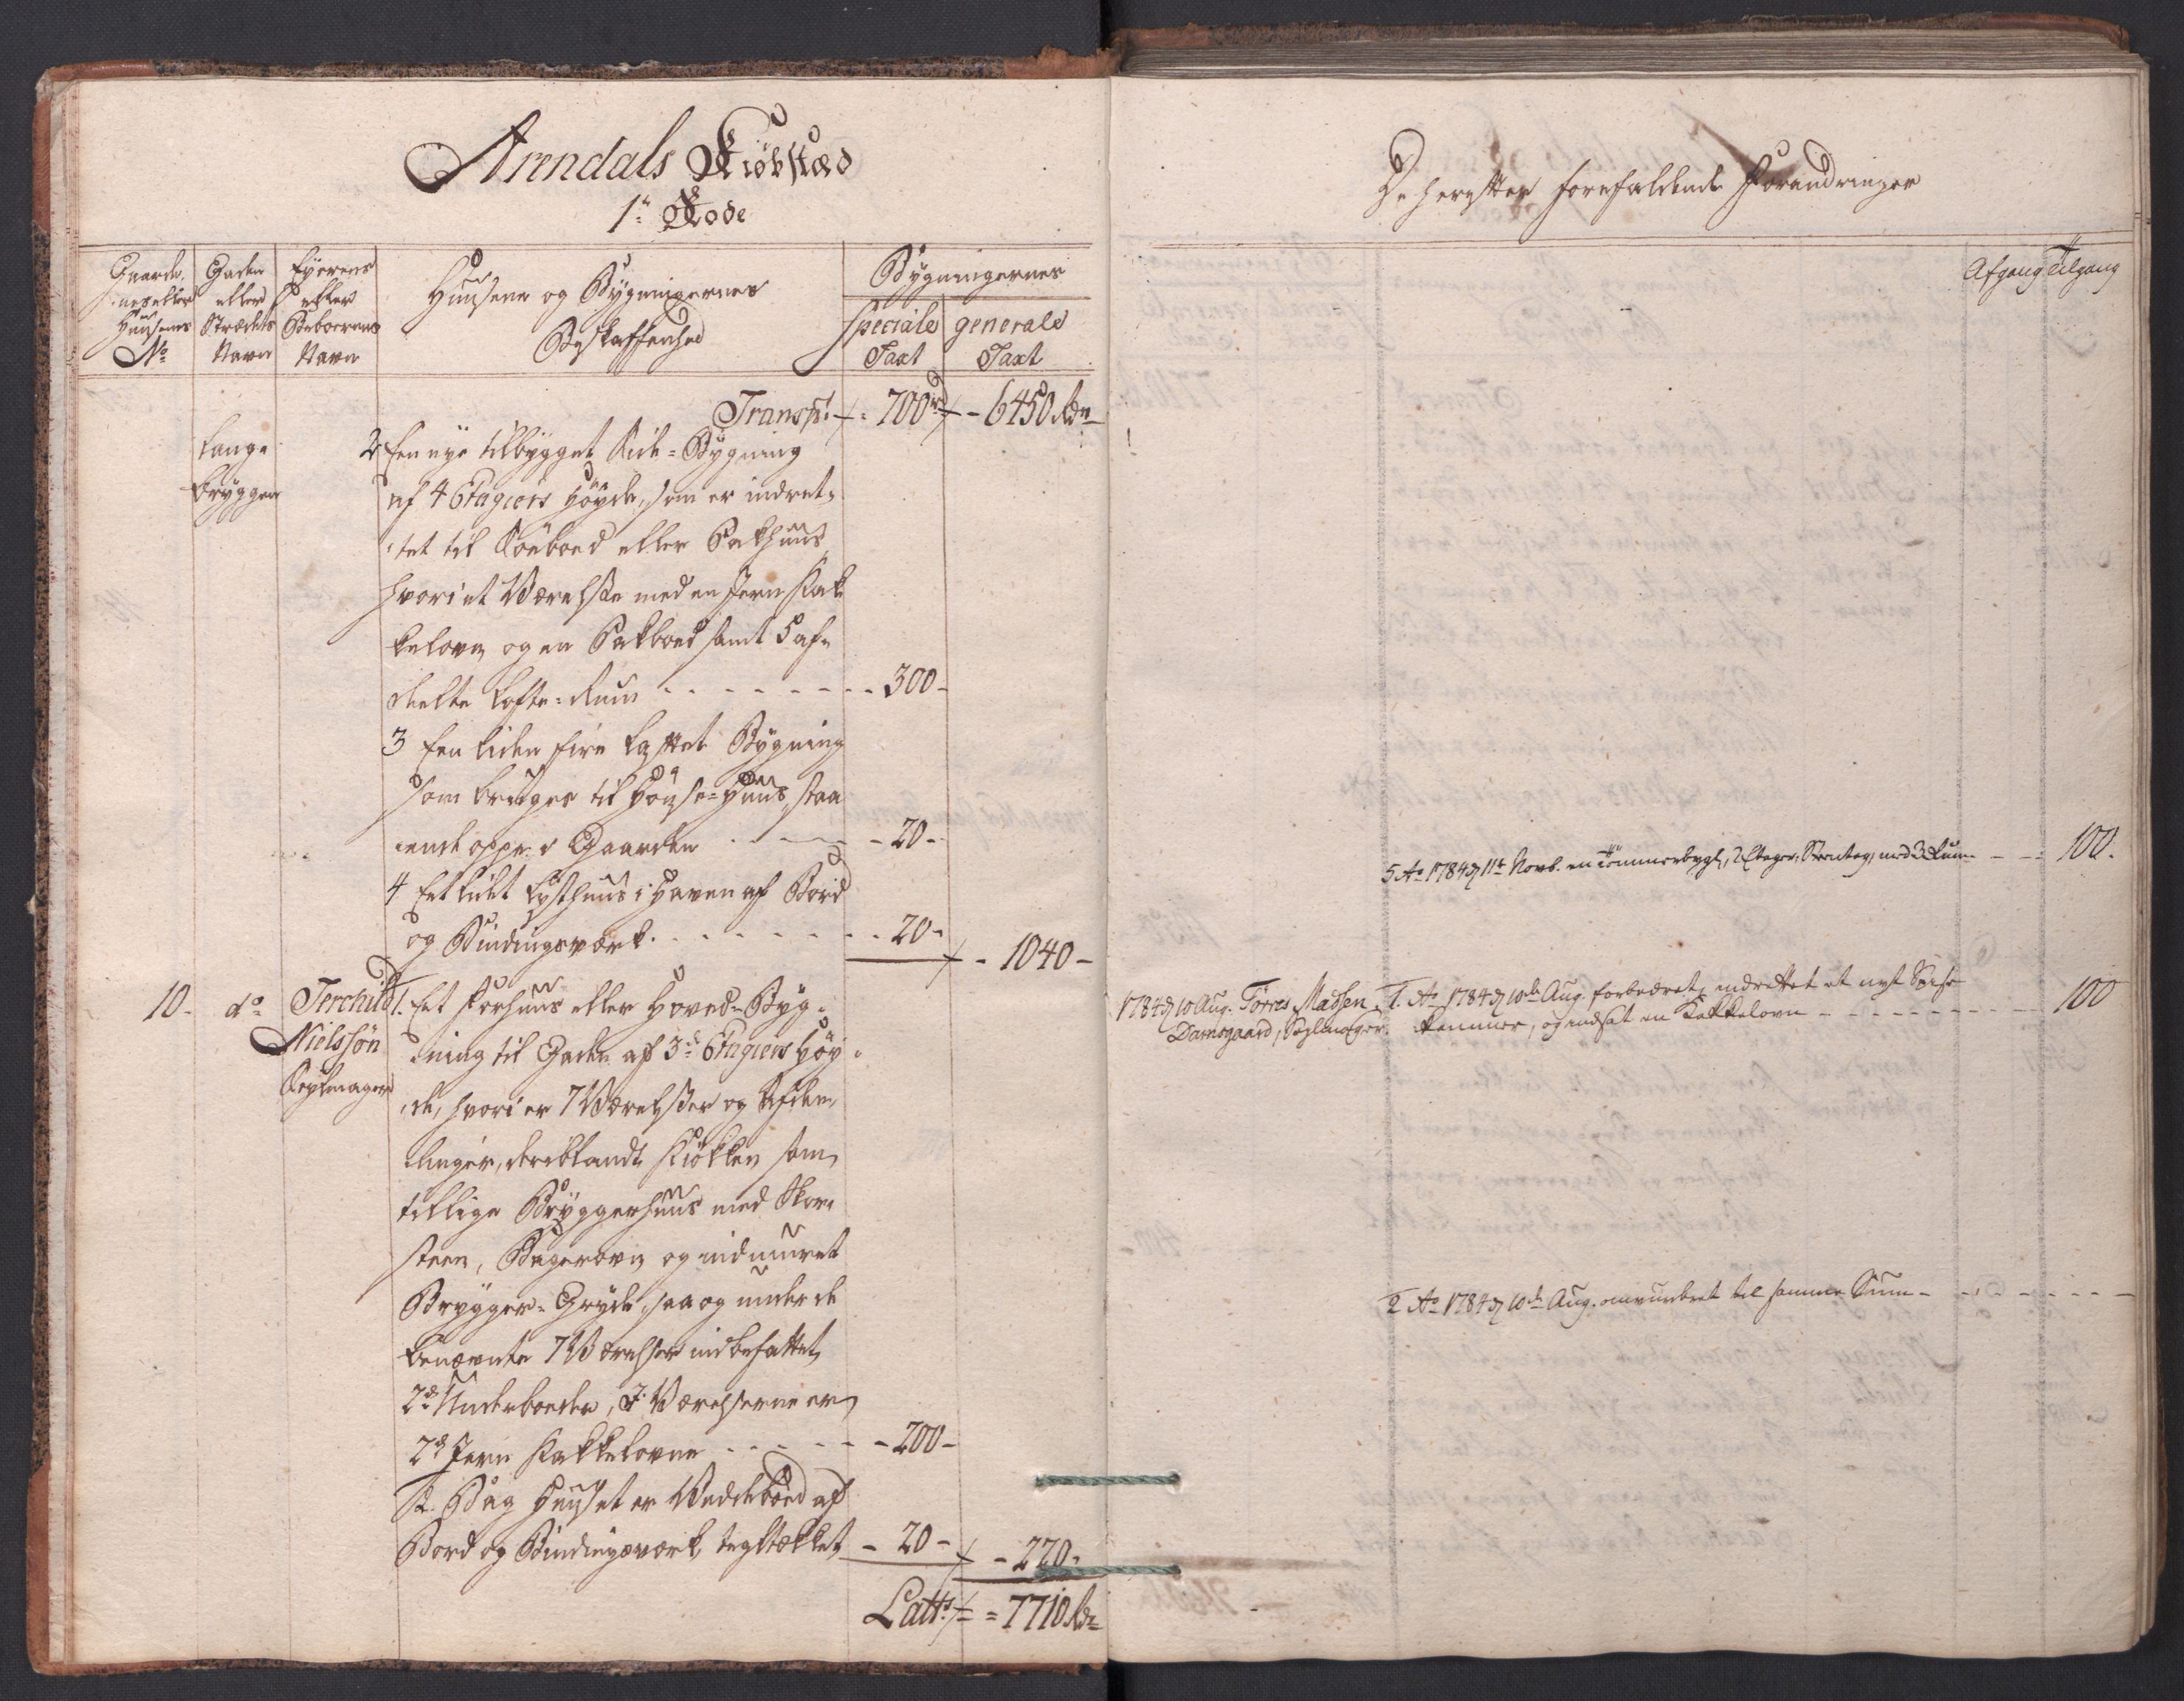 Arendals Kiøbstæd
1te Rode
Gaarde-
nes eller
Huusenes
No
Gaden
eller
Strædets
Navn
Eyerens
eller
Beboerens
Navn
Huusene og Bygningernes
Beskaffenhed
Bygningernes
speciale
Taxt
generale
Taxt
Transpt 700rd - 6450 Rdr
Lange
Bryggen
2 Een nye tilbygget Side-Bygning
af 4 Etagiers Höyde, som er indret-
tet til Söeboed eller Pakhuus
hvori et Værelse med en Jern Kak
kelovn og en Pakboed samt 5 af-
deelte Lofte-Rum - - - 300 -
3 Een liden fire kastet Bygning
som bruges til Hönse-Huus, staa
ende oppe i Gaarden - - - 20 -
4 Eet lidet Lysthuus i Haven af Bord
og Bindingsværk - - - 20 - 1040 -
10. do Terchild
Nielssön
Seylmager
1. Eet Forhuus eller Hoved-Byg-
ning til Gaden af 3de Etagiers Höy-
de, hvori er 7 Værelser og Afdee
linger, deriblandt Kiökken som
tillige Bryggerhuus med Skor-
steen, Bagerovn og indmuuret
Brygger-Gryde, saa og under de
benævnte 7 Værelser indbefattet
2de Underboeder, I Værelserne er
2de Jern Kakkelovne - - - 200 -
2. Bag Huuset er Veddeboed af
Bord og Bindingsværk, tegltækket - 20 - 220 -
Latts = 7710 Rdr
De herefter forefaldende Forandringer
Afgang Tilgang
5 Ao 1784 d 11te Novb. en Tömmerbygn., 2 Etager, Steentag, med 3 Rum - - 100.
1784 d 10 Aug. Törres Madsen
Damsgaard, Seglmager.
1. Ao 1784 d 10de Aug. forbedret, indrettet et nyt Spise
kammer, og indsat en Kakkelovn - - - 100
2 Ao 1784 d 10de Aug. omvurderet til samme Sum - - -